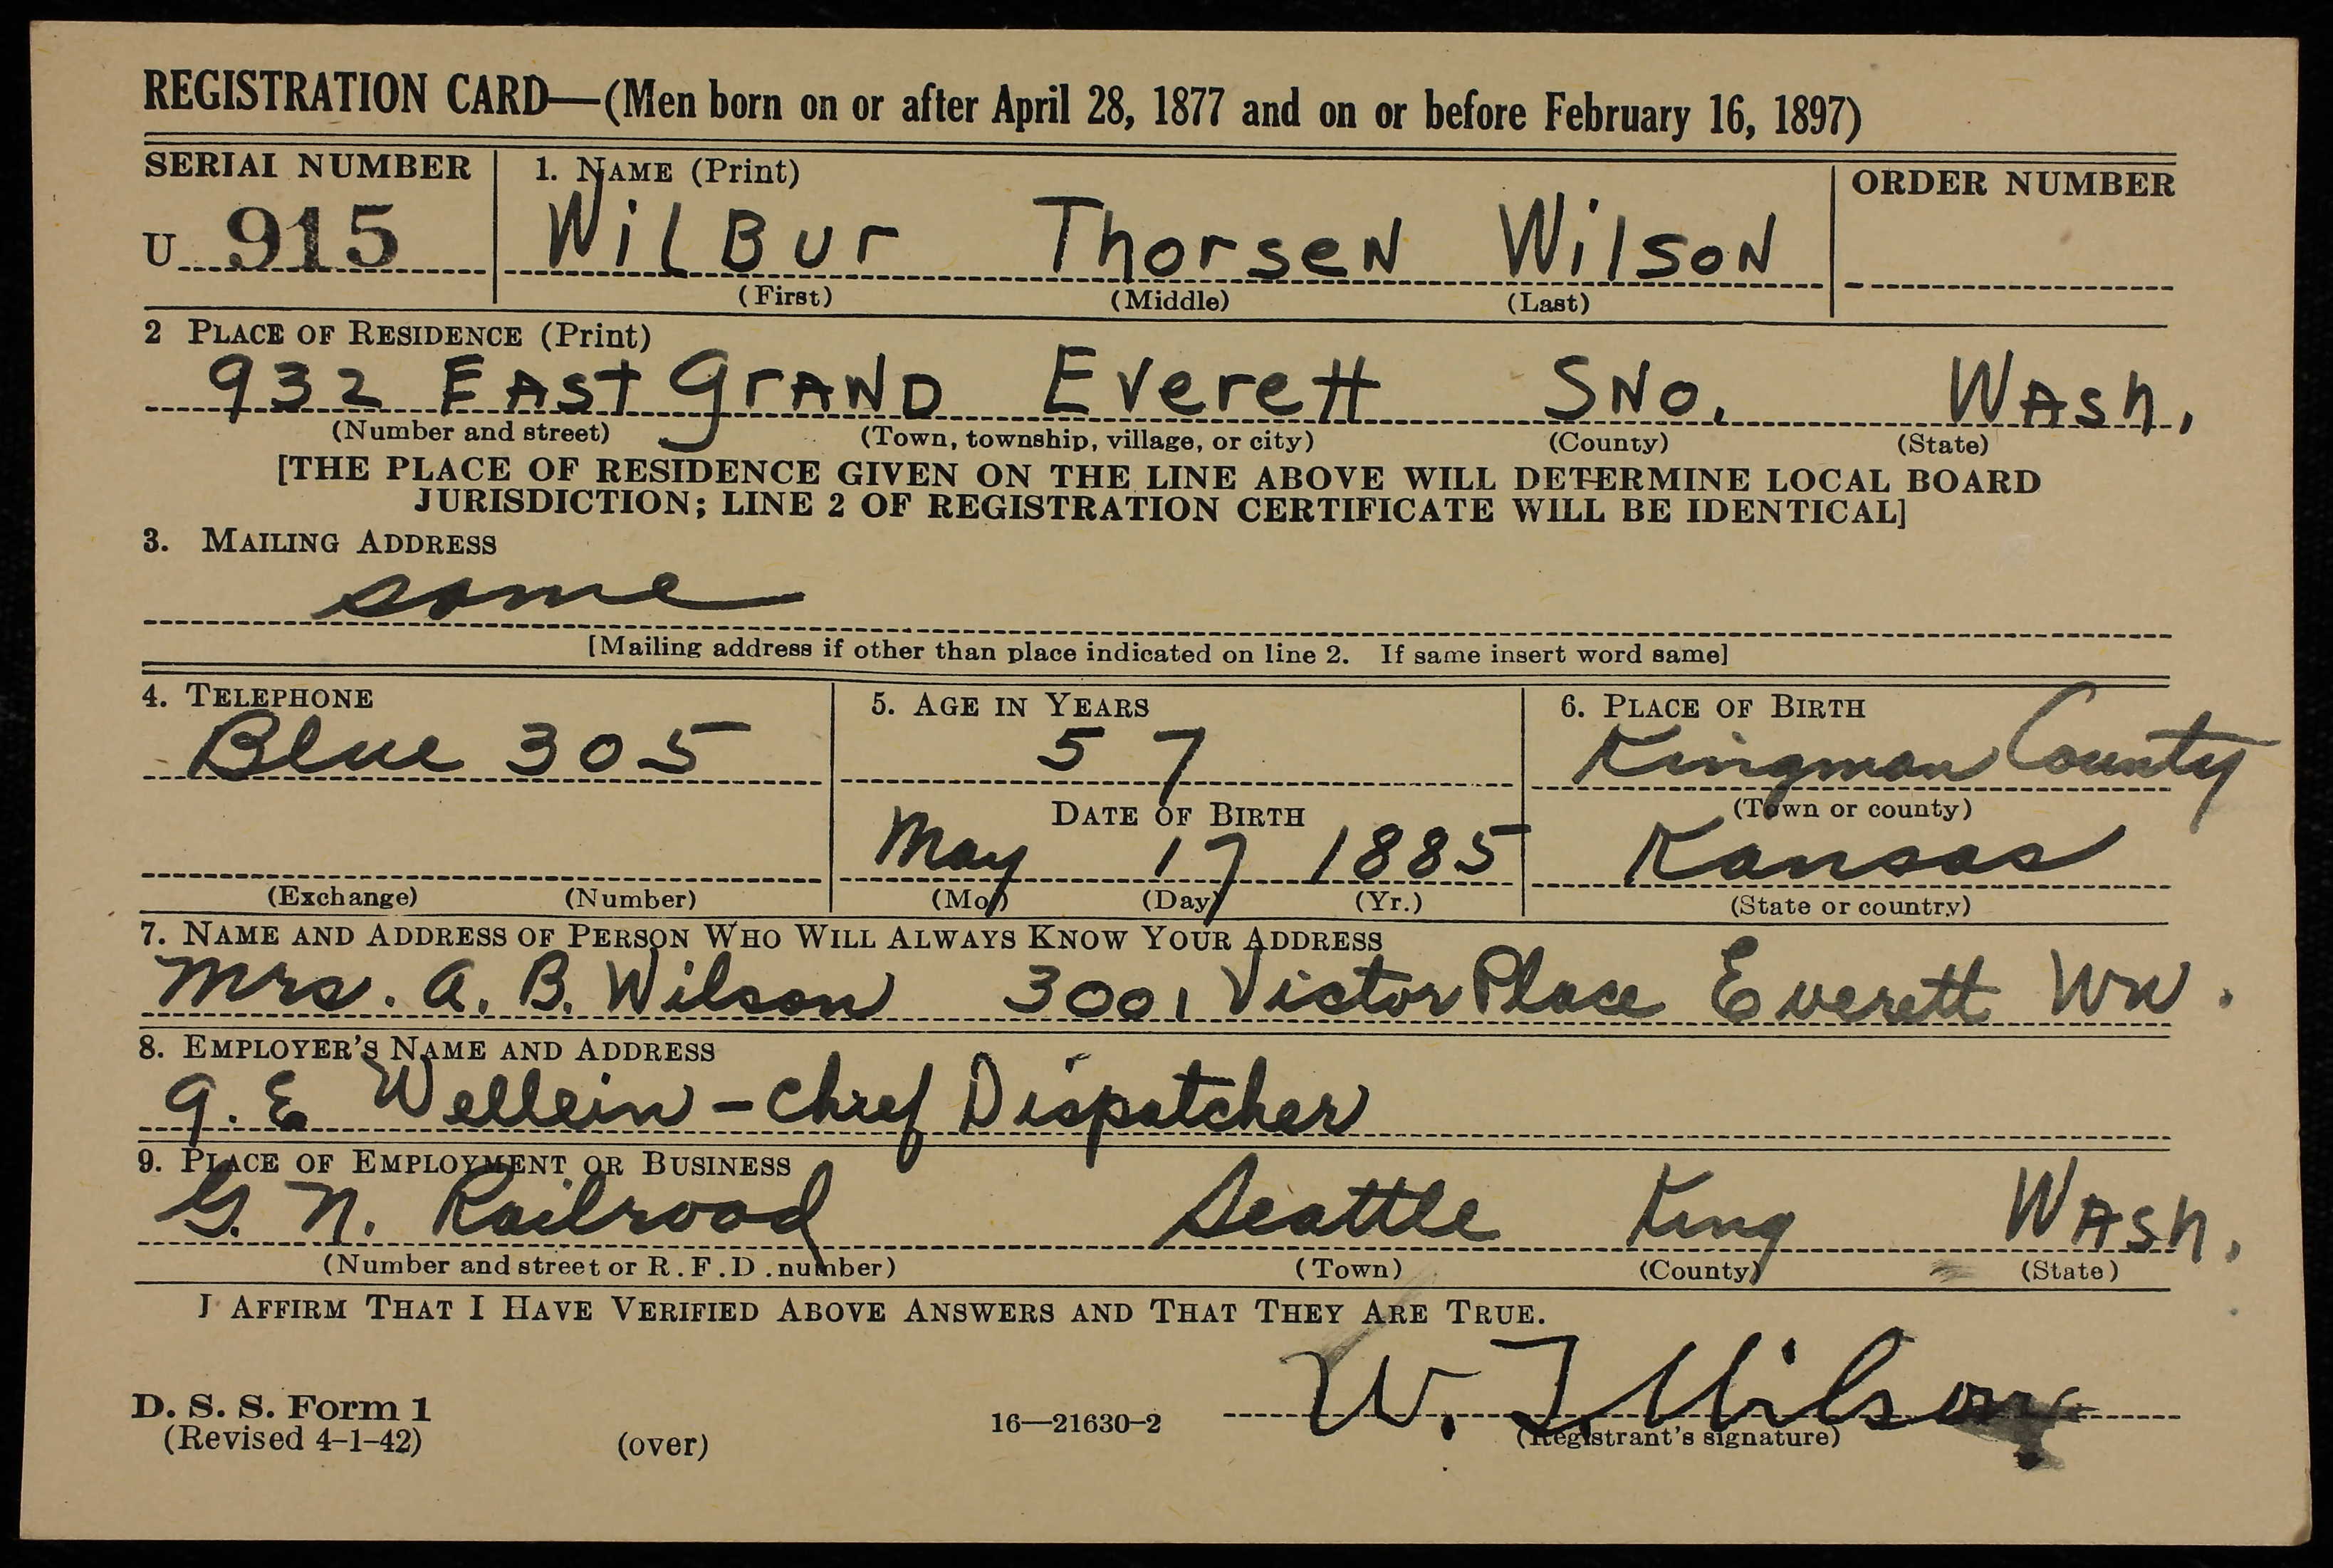 REGISTRATION CARD—(Men born on or after April 28, 1877 and on or before February 16, 1897)
SERIAL NUMBER 1. NAME (Print) ORDER NUMBER
U 915 WilBur Thorsen Wilson
(First) (Middle) (Last)
2 PLACE OF RESIDENCE (Print)
932 EAST GRAND Everett SNO. WAsh.
(Number and street) (Town, township, village, or city) (County) (State)
[THE PLACE OF RESIDENCE GIVEN ON THE LINE ABOVE WILL DETERMINE LOCAL BOARD
JURISDICTION; LINE 2 OF REGISTRATION CERTIFICATE WILL BE IDENTICAL]
3. MAILING ADDRESS
same
[Mailing address if other than place indicated on line 2. If same insert word same]
4. TELEPHONE 5. AGE IN YEARS 6. PLACE OF BIRTH
Blue 305 57 Kingman County
DATE OF BIRTH (Town or county)
May 17 1885 Kansas
(Exchange) (Number) (Mo.) (Day) (Yr.) (State or country)
7. NAME AND ADDRESS OF PERSON WHO WILL ALWAYS KNOW YOUR ADDRESS
Mrs. A. B. Wilson 3001 Victor Place Everett Wn.
8. EMPLOYER'S NAME AND ADDRESS
E Wellein - Chief Dispatcher
9. PLACE OF EMPLOYMENT OR BUSINESS
G. N. Railroad Seattle King WAsh.
(Number and street or R.F.D. number) (Town) (County) (State)
I AFFIRM THAT I HAVE VERIFIED ABOVE ANSWERS AND THAT THEY ARE TRUE.
W. T. Wilson
D. S. S. Form 1 16—21630-2 (Registrant's signature)
(Revised 4-1-42) (over)